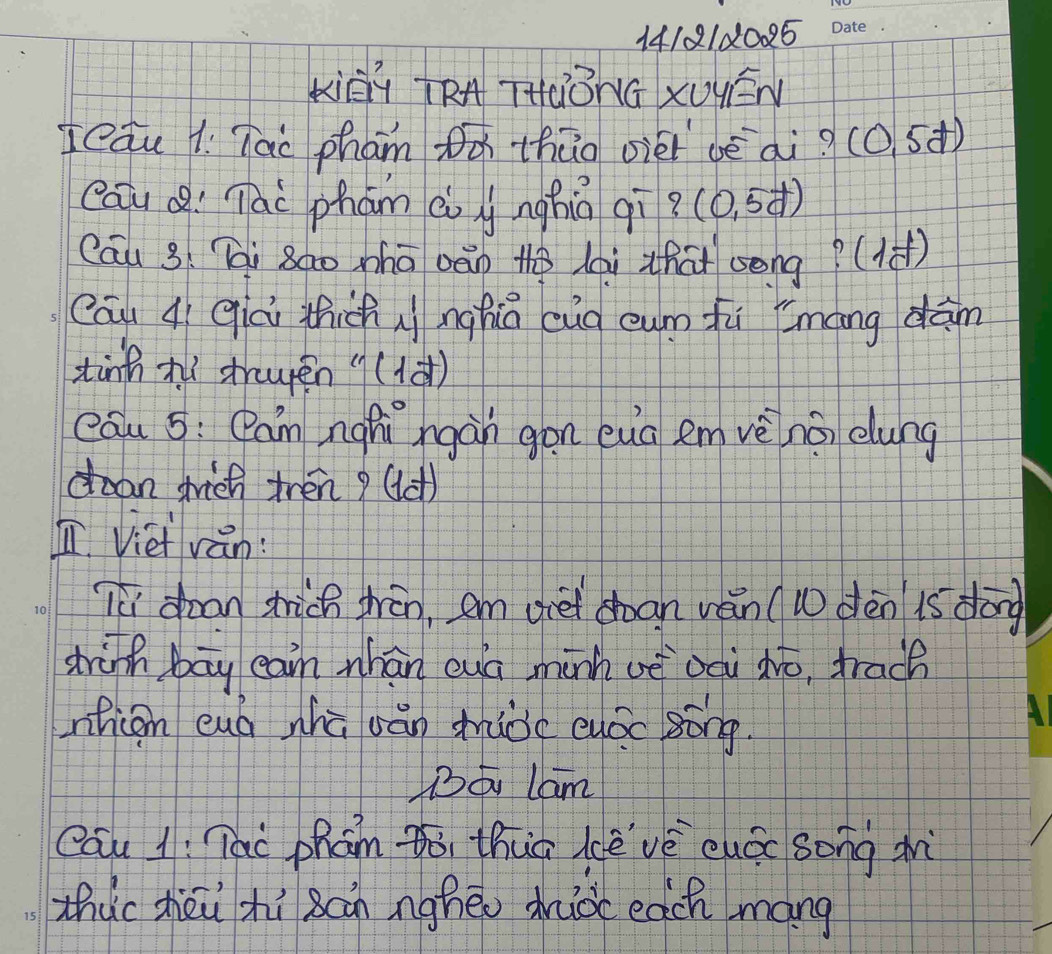 NO
14/2/2025 Date
KIỂM TRA THƯỜNG XUYÊN
I Câu 1: Tác phẩm Đời thừa viết về ai? (0,5đ)
Câu 2: Tác phẩm có ý nghĩa gì? (0,5đ)
Câu 3: Tại sao nhà văn Hộ lại thất vọng? (1đ)
5 Câu 4: Giải thích ý nghĩa của cụm từ "mang đậm
tính tự truyện" (1đ)
Câu 5: Cảm nghĩ ngắn gọn của em về nội dung
đoạn trích trên? (1đ)
II. Viết văn:
10 Từ đoạn trích trên, em viết đoạn văn (10 đến 15 dòng
trình bày cảm nhận của mình về vai trò, trách
nhiệm của nhà văn trước cuộc sống.
Bài làm
Câu 1: Tác phẩm Đời thừa kể về cuộc sống tri
15 thức tiểu tư sản nghèo trước cách mạng